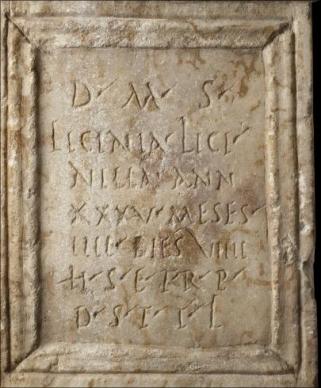 D · M · S ·
LICINIA · LICI
NILLA · ANN
XXXV · MESES ·
IIII · DIES VIIII
H · S · E · T · R · P ·
D · S · T · T · L